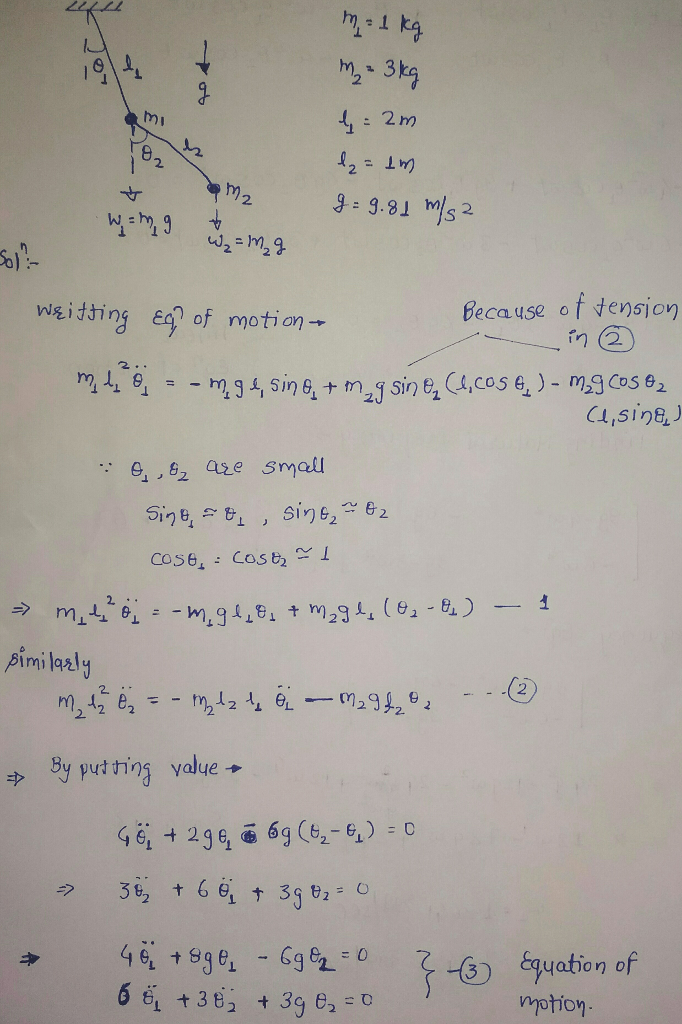 θ₁ l₁
g
m₁
θ₂ l₂
m₂
W₁ = m₁g
W₂ = m₂g
m₁ = 1 kg
m₂ = 3 kg
l₁ = 2m
l₂ = 1m
g = 9.81 m/s2
Solⁿ:-
Writting Eqⁿ of motion →
Because of tension
in ②
m₁l₁²θ̈₁ = - m₁gl₁ sinθ₁ + m₂g sinθ₂ (l₁cosθ₁) - m₂g cosθ₂
(l₁sinθ₁)
∵ θ₁, θ₂ are small
sinθ₁ ≃ θ₁ , sinθ₂ ≃ θ₂
cosθ₁ = cosθ₂ ≃ 1
⇒ m₁l₁²θ̈₁ = - m₁gl₁θ₁ + m₂gl₁ (θ₂ - θ₁) — 1
similarly
m₂l₂²θ̈₂ = - m₂l₂l₁θ̈₁ — m₂gl₂θ₂ ---②
⇒ By putting value →
4θ̈₁ + 2gθ₁ - 6g(θ₂ - θ₁) = 0
⇒ 3θ̈₂ + 6θ̈₁ + 3gθ₂ = 0
⇒ 4θ̈₁ + 8gθ₁ - 6gθ₂ = 0
6θ̈₁ + 3θ̈₂ + 3gθ₂ = 0
} -③ Equation of
motion.